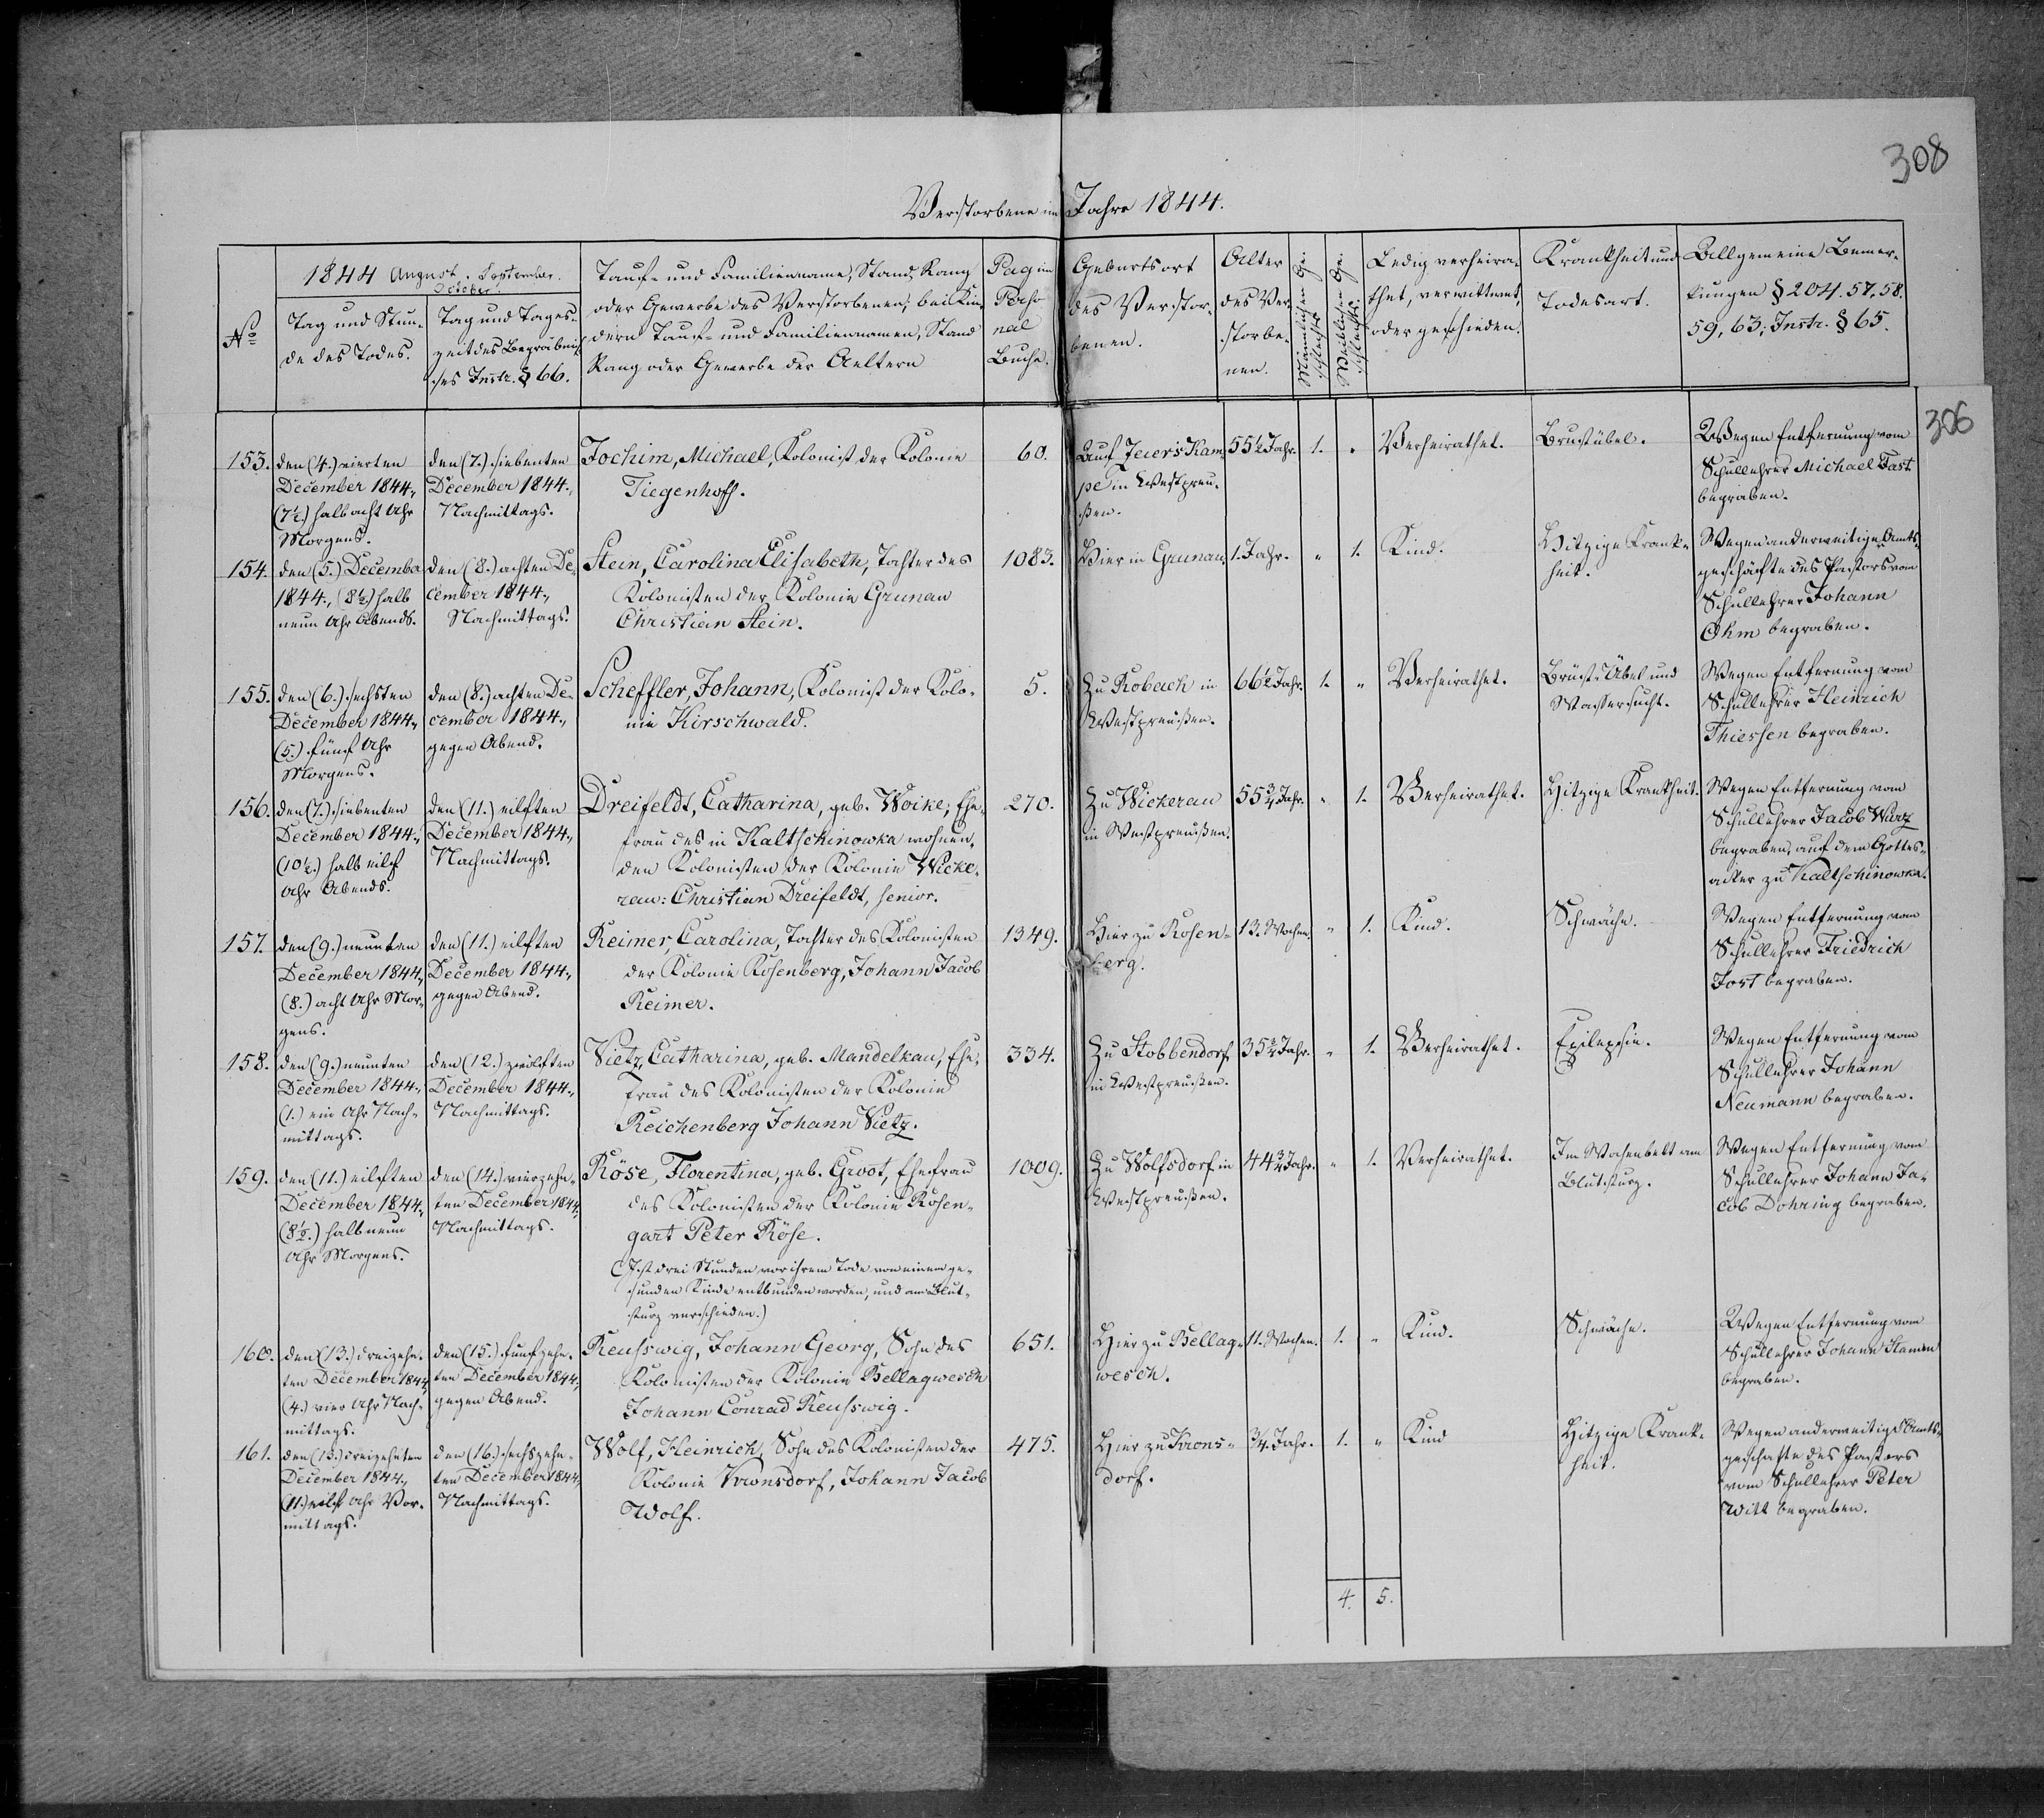 308
Verstorbene im Jahre 1844.
No
1844 August. September.
October.
Tag und Stun-
de des Todes.
Tag und Tages-
zeit des Begräbnis-
ses Instr. § 66.
Tauf- und Familienname, Stand, Rang
oder Gewerbe des Verstorbenen, bei Kin-
dern Tauf- und Familiennamen, Stand
Rang oder Gewerbe der Aeltern
Pag im
Perso
nal
Buche.
Geburtsort
des Verstor-
benen.
Alter
des Ver-
storbe-
nen.
Männlichen Ge-
schlechts
Weiblichen Ge-
schlechts.
Ledig verheira-
thet, verwittwet,
oder geschieden.
Krankheit und
Todesart.
Allgemeine Bemer-
kungen § 204. 57, 58.
59, 63, Instr. § 65.
306
153.
den (4.) vierten
December 1844.,
(7½.) halb acht Uhr
Morgens.
den (7.) siebenten
December 1844.,
Nachmittags.
Jochim, Michael, Kolonist der Kolonie
Tiegenhoff.
60.
Auf Jeiers Kam
pe in Westpreu-
ßen.
55½ Jahr.
1.
"
Verheirathet.
Brustübel.
Wegen Entfernung vom
Schullehrer Michael Fast
begraben.
154.
den (5.) December
1844., (8½.) halb
neun Uhr Abends.
den (8.) achten De-
cember 1844.,
Nachmittags.
Stein, Carolina Elisabeth, Tochter des
Kolonisten der Kolonie Grunau
Christian Stein.
1083.
Hier in Grunau.
1. Jahr.
"
1.
Kind.
Hitzige Krank-
heit.
Wegen anderweitiger Amts-
geschäfte des Pastors vom
Schullehrer Johann
Ohm begraben.
155.
den (6.) sechsten
December 1844.,
(5.) fünf Uhr
Morgens.
den (8.) achten De-
cember 1844.,
gegen Abend.
Scheffler, Johann, Kolonist der Kolo-
nie Kirschwald.
5.
Zu Robach in
Westpreußen.
66½ Jahr.
1.
"
Verheirathet.
Brust-Übel und
Wassersucht.
Wegen Entfernung vom
Schullehrer Heinrich
Thiessen begraben.
156.
den (7.) siebenten
December 1844.,
(10½.) halb eilf
Uhr Abends.
den (11.) eilften
December 1844.,
Nachmittags.
Dreifeldt, Catharina, geb. Woike, Ehe-
frau des in Kaltschinowka wohnen-
den Kolonisten der Kolonie Wicke-
rau: Christian Dreifeldt, senior.
270.
Zu Wickerau
in Westpreußen.
55¾ Jahr.
"
1.
Verheirathet.
Hitzige Krankheit.
Wegen Entfernung vom
Schullehrer Jacob Würz
begraben, auf dem Gottes-
acker zu Kaltschinowka.
157.
den (9.) neunten
December 1844.,
(8.) acht Uhr Mor-
gens.
den (11.) eilften
December 1844.,
gegen Abend.
Reimer, Carolina, Tochter des Kolonisten
der Kolonie Rosenberg, Johann Jacob
Reimer.
1349.
Hier zu Rosen-
berg.
13. Wochen.
"
1.
Kind.
Schwäche.
Wegen Entfernung vom
Schullehrer Friedrich
Jost begraben.
158.
den (9.) neunten
December 1844.,
(1.) ein Uhr Nach-
mittags.
den (12.) zwölften
December 1844.,
Nachmittags.
Vietz, Catharina, geb. Mandelkau, Ehe-
frau des Kolonisten der Kolonie
Reichenberg Johann Vietz.
334.
Zu Stobbendorf
in Westpreußen.
35¾ Jahr.
"
1.
Verheirathet.
Epilepsie.
Wegen Entfernung vom
Schullehrer Johann
Neumann begraben.
159.
den (11.) eilften
December 1844.,
(8½.) halb neun
Uhr Morgens.
den (14.) vierzehn-
ten December 1844.,
Nachmittags.
Röse, Florentina, geb. Groot, Ehefrau
des Kolonisten der Kolonie Rosen-
gart Peter Röse.
(Ist drei Stunden vor ihrem Tode von einem ge-
sunden Kinde entbunden worden, und am Blut-
sturz verschieden.)
1009.
Zu Wolfsdorf in
Westpreußen.
44¾ Jahr.
"
1.
Verheirathet.
Im Wochenbett am
Blutsturz.
Wegen Entfernung vom
Schullehrer Johann Ja-
cob Dohring begraben.
160.
den (13.) dreizehn-
ten December 1844,
(4.) vier Uhr Nach-
mittags.
den (15.) fünfzehn-
ten December 1844.,
gegen Abend.
Reusswig, Johann Georg, Sohn des
Kolonisten der Kolonie Bellagwesch
Johann Conrad Reusswig.
651.
Hier zu Bellag-
wesch.
11. Wochen.
1.
"
Kind.
Schwäche.
Wegen Entfernung vom
Schullehrer Johann Hamm
begraben.
161.
den (13.) dreizehnten
December 1844.,
(11.) eilf Uhr Vor-
mittags.
den (16.) sechszehn-
ten December 1844.,
Nachmittags.
Wolf, Heinrich, Sohn des Kolonisten der
Kolonie Kronsdorf, Johann Jacob
Wolf.
475.
Hier zu Krons-
dorf.
¾. Jahr.
1.
"
Kind
Hitzige Krank-
heit.
Wegen anderweitiger Amts-
geschäfte des Pastors
vom Schullehrer Peter
Witt begraben.
4.
5.